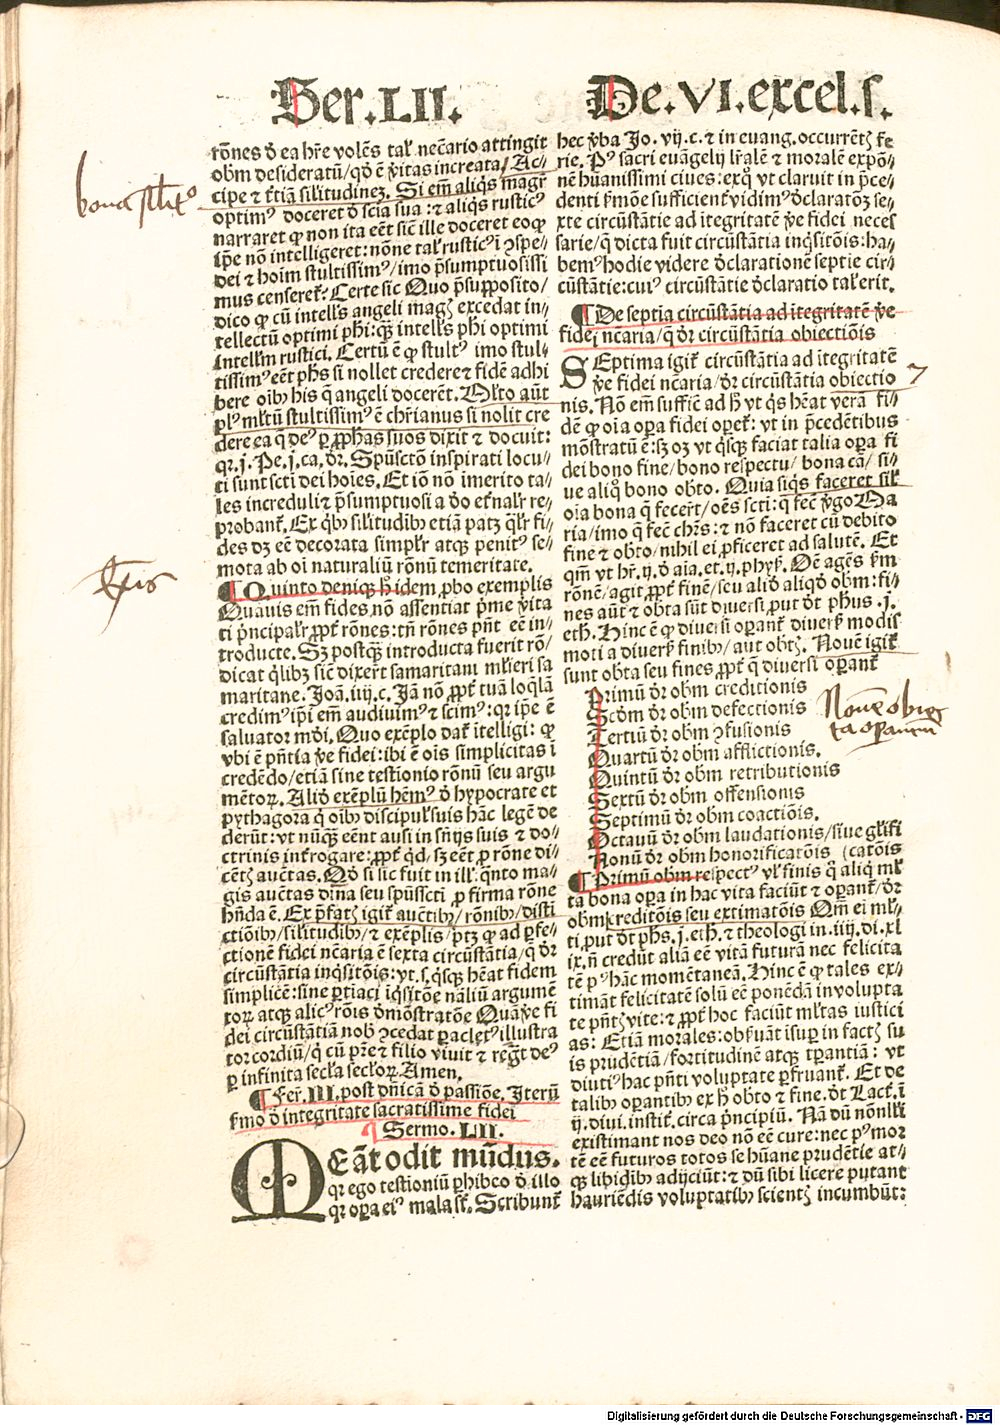 Ser.LII.
De.VI.excel.s.
bona silitᵒ
rōnes ꝺ ea hr̄e volēs talʳ necārio attingit
obm desideratū/qꝺ ē v̄itas increata/Ac//
cipe ⁊ t̄tiā silitudinez. Si em̄ aliqͥs magr̄
optimꝰ doceret ꝺ scīa sua: ⁊ aliqͥs rusticꝰ
narraret ꝙ non ita eēt sic̄ ille doceret eo ꝙ
ip̄e nō intelligeret: nōne talʳ rusticꝰ ī ↄspe//
dei ⁊ hoīm stultissimꝰ/imo p̄sumptuosissi
mus censeret᷑? Certe sic Quo p̄supposito/
dico ꝙ cū intell̄s angeli magꝭ excedat in//
tellectū optimi phī: qꝫ intell̄s phī optimi
intellm̄ rustici. Certū ē ꝙ stultꝰ imo stul//
tissimꝰ eēt phs̄ si nollet credere ⁊ fidē adhi
bere oibꝫ his q̄ angeli docerēt. Mlto aūt
plꝰ mltū stultissimꝰ ē chr̄ianus si nolit cre
dere ea q̄ deꝰ ꝑ ꝓphas suos dixit ⁊ docuit:
qꝛ.j. Pe.j.ca. ꝺr̄. Spūsctō inspirati locu//
ti sunt scti dei hoīes. Et iō nō imerito ta//
les increduli ⁊ p̄sumptuosi a ꝺo et̄nalʳ re//
probant᷑. Ex qͥbꝫ silitudibꝫ etiā patꝫ qlʳ fi//
des dꝫ eē decorata simplʳ atqꝫ penitꝰ se//
mota ab oi naturaliū rōnū temeritate.
xpis
¶ Quinto deniqꝫ h̄ idem ꝓbo exemplis
Quāuis em̄ fides nō assentiat p̄me v̄ita
ti p̄ncipalʳ ꝓpt̄ rōnes: tn̄ rōnes pn̄t eē in//
troducte. Sꝫ postqꝫ introducta fuerit rō/
dicat qͥlibꝫ sic̄ dixer̄t samaritani mlʳieri sa
maritane. Joā.iiij.c. Jā nō ꝓpt̄ tuā loq̄lā
credimꝰ ip̄i em̄ audiuimꝰ ⁊ scimꝰ: qꝛ ip̄e ē
saluator mūdi. Quo exēplo dat᷑ itelligi: ꝙ
vbi ē pn̄tia v̄e fidei: ibi ē ois simplicitas ī
credēdo/etiā sine testionio rōnū seu argu
mētoꝝ. Aliꝺ exēplū hēmꝰ ꝺ hypocrate et
pythagora q̄ oibꝫ discipulʳ suis hāc legē de
derūt: vt nūqꝫ eēnt ausi in sn̄ijs suis ⁊ do//
ctrinis int̄rogare: ꝓpt̄ qͥd, sꝫ eēt ꝑ rōne di//
cētꝭ auc̄tas. Qꝺ si sic fuit in ill': qͣnto ma//
gis auc̄tas diīna seu spūsscti ꝑ firma rōne
hn̄da ē. Ex p̄fatꝭ igit᷑ auc̄tibꝫ/rōnibꝫ/disti
ctiōibꝫ/silitudibꝫ/⁊ exēplis/ptꝫ ꝙ ad ꝑfe//
ctionē fidei nc̄aria ē sexta circūstātia/q̄ ꝺr̄
circūstātia inqͥsitōis: vt.s.qͥsqꝫ hēat fidem
simplicē: sine ꝑtiaci iqͥsitōe nāliū argumē
toꝝ atqꝫ alicꝰ rōis ꝺmōstratōe Quā v̄e fi
dei circūstātiā nob̄ ↄcedat paraclꝰ illustra
tor cordiū/q̄ cū pr̄e ⁊ filio viuit ⁊ regͣt deꝰ
ꝑ infinita secla secloꝝ. Amen.
¶ Fer.III.post dn̄icā ꝺ passiōe. Iterū
s̄mo ꝺ integritate sacratissime fidei
Sermo.LII.
ME aūt odit mūdus.
qꝛ ego testioniū ꝑhibeo ꝺ illo
qꝛ oꝑa eiꝰ mala st̄. Scribunt᷑
hec v̄ba Jo.vij.c.⁊ in euang.occurrētꝭ fe
rie. Pꝰ sacri euāgelij lr̄alē ⁊ moralē expō//
nē hūanissimi ciues: ex qͦ vt claruit in p̄ce//
denti s̄mōe sufficient̄ vidimꝰ ꝺclaratōꝫ se//
xte circūstātie ad itegritatē v̄e fidei neces
sarie/q̄ dicta fuit circūstātia inqͥsitōis: ha//
bemꝰ hodie videre ꝺclarationē septie cir//
cūstātie: cuiꝰ circūstātie ꝺclaratio talʳ erit.
¶ De septia circūstātia ad itegritatē v̄e
fidei nc̄aria/q̄ ꝺr̄ circūstātia obiectiōis
SEptima igit᷑ circūstātia ad itegritatē
v̄e fidei nc̄aria/ꝺr̄ circūstātia obiectio
7
nis. Nō em̄ suffic̄ ad h̄ vt qͥs hēat verā fi//
dē ꝙ oīa oꝑa fidei oꝑet᷑: vt in p̄cedētibus
mōstratū ē: sꝫ oꝫ vt qͥsqꝫ faciat talia oꝑa fi
dei bono fine/bono respectu/bona cā/si//
ue aliqͦ bono obto. Quia siqͥs faceret silʳ
oīa bona q̄ fecer̄t/oēs scti: q̄ fec̄ v̄go Ma
ria/imo q̄ fec̄ chrs̄: ⁊ nō faceret cū debito
fine ⁊ obto/nihil ei ꝓficeret ad salutē. Et
qm̄ vt hr̄.ij.ꝺ aīa.et.ij.phys̄. Oē agēs s̄m
rōnē/agit ꝓpt̄ finē/seu aliꝺ aliqꝺ obm: fi//
nes aūt ⁊ obta sūt diuersi ꝓut ꝺt phus.j.
eth. Hinc ē ꝙ diuersi oꝑant᷑ diuers̄ modis
moti a diuers̄ finibꝫ/aut obtꝭ. Nouē igit᷑
sunt obta seu fines ꝓpt̄ q̄ diuersi oꝑant᷑
Noue obiec
ta oꝑantiū
Primū ꝺr̄ obm creditionis
Scꝺm ꝺr̄ obm defectionis
Tertiū ꝺr̄ obm ↄfusionis
Quartū ꝺr̄ obm afflictionis.
Quintū ꝺr̄ obm retributionis
Sextū ꝺr̄ obm offensionis
Septimū ꝺr̄ obm coactiōis.
Octauū ꝺr̄ obm laudationis/siue glʳifi
Nonū ꝺr̄ obm honorificatōis (catōis
¶ Primū obm respectꝰ vlʳ finis q̄ aliqͥ ml̄
ta bona oꝑa in hac vita faciūt ⁊ oꝑant᷑/ꝺr̄
obm creditōis seu extimatōis Qm̄ ei ml̄//
ti ꝓut ꝺt phs̄.j.eth.⁊ theologi in.iiij.di.xl
ix.n̄ credūt aliā eē vitā futurā nec felicita
tē pꝰ hāc momētaneā. Hinc ē ꝙ tales ex//
timāt felicitatē solū eē ponēdā in volupta
te pn̄tꝭ vite: ⁊ ꝓpt̄ hoc faciūt ml̄tas iustici
as: Etiā morales: obs̄uāt isuꝑ in factꝭ su
is prudētiā/fortitudinē atqꝫ tꝑantiā: vt
diutiꝰ hac pn̄ti voluptate ꝑfruant᷑. Et de
talibꝫ oꝑantibꝫ ex h̄ obto ⁊ fine. ꝺt Lact̄.ī
ij.diui.instit᷑.circa p̄ncipiū. Nā dū nōnlli
existimant nos deo nō eē cure: nec pꝰ mor
tē eē futuros totos se hūane prudētie at//
qꝫ libidibꝫ adijciūt: ⁊ dū sibi licere putant
hauriēdis voluptatibꝫ scientꝭ incumbūt:
Digitalisierung gefördert durch die Deutsche Forschungsgemeinschaft - DFG